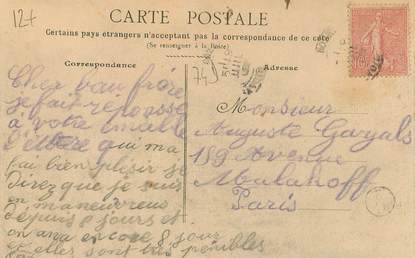 12+
CARTE POSTALE
Certains pays étrangers n'acceptent pas la correspondance de ce côté
(Se renseigner à la Poste)
Correspondance
Adresse
74
Cher bau frère
je fait reponsse
à votre aimable
l'ettere qui ma
fai bien plisir je
Direz que je suis
en maneuvreus
depuis 8 jours et
on ana encore 8 jour
elles sont très penibles
Monsieur
Auguste Garyals
159 Avenue
Malakoff
Paris